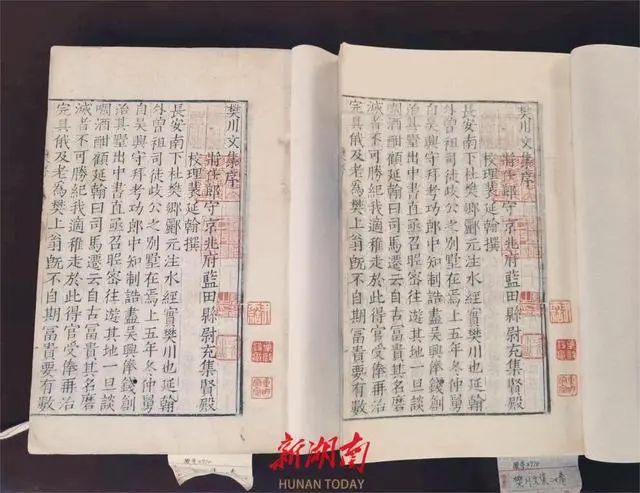 樊川文集序
將仕郎守京兆府藍田縣尉充集賢殿
校理裴延翰撰
長安南下杜樊鄉酈元注水經實樊川也延翰
外曾祖司徒岐公之別墅在焉上五年冬仲舅
自吳興守拜考功郎中知制誥盡吳興俸錢創
治其墅出中書直亟召昵密往遊其地一旦談
啁酒酣顧延翰曰司馬遷云自古冨貴其名磨
滅者不可勝紀我適稚走於此得官受俸再治
完具俄及老為樊上翁旣不自期冨貴要有數
樊川文集序
將仕郎守京兆府藍田縣尉充集賢殿
校理裴延翰撰
長安南下杜樊鄉酈元注水經實樊川也延翰
外曾祖司徒岐公之別墅在焉上五年冬仲舅
自吳興守拜考功郎中知制誥盡吳興俸錢創
治其墅出中書直亟召昵密往遊其地一旦談
啁酒酣顧延翰曰司馬遷云自古冨貴其名磨
滅者不可勝紀我適稚走於此得官受俸再治
完具俄及老為樊上翁旣不自期冨貴要有數
樊川文集
新湖南
HUNAN TODAY